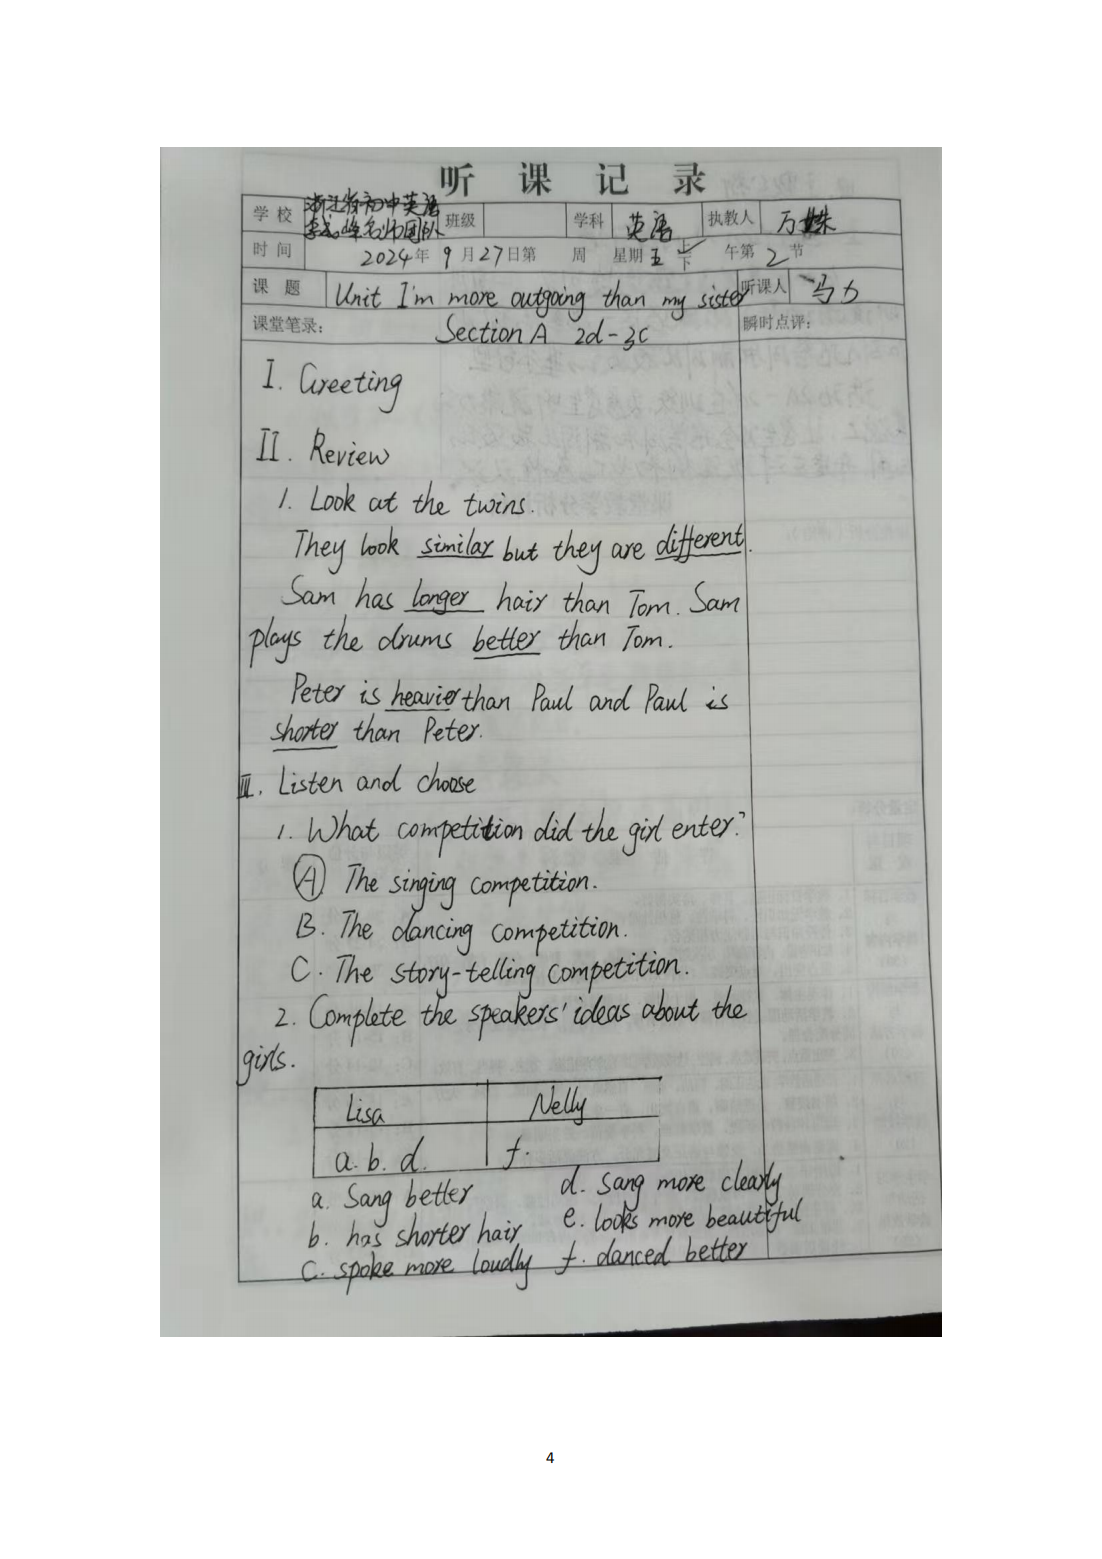 听 课 记 录
学 校 浙江省初中英语 班级 学科 英语 执教人 万姝
名师团队
时 间 2024年 9月27日第 周 星期五 上 下 午第 2 节
课 题 Unit I'm more outgoing than my sister 听课人 马力
课堂笔录: Section A 2d-3c 瞬时点评:
I. Greeting
II. Review
1. Look at the twins.
They look similar but they are different.
Sam has longer hair than Tom. Sam
plays the drums better than Tom.
Peter is heavier than Paul and Paul is
shorter than Peter.
III. Listen and choose
1. What competition did the girl enter?
A The singing competition.
B. The dancing competition.
C. The story-telling competition.
2. Complete the speakers' ideas about the
girls.
Lisa Nelly
a. b. d. f.
a. Sang better d. sang more clearly
b. has shorter hair e. looks more beautiful
c. spoke more loudly f. danced better
4